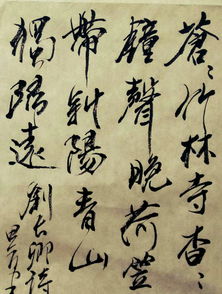 蒼〻竹林寺杳〻
鐘聲晚荷笠
帶斜陽青山
獨歸遠
劉長卿詩